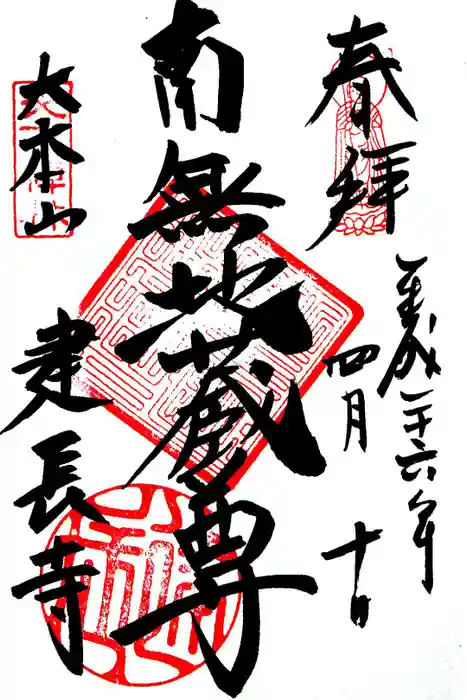 奉拝
平成二十六年
四月十日
南無地蔵尊
大本山
建長寺